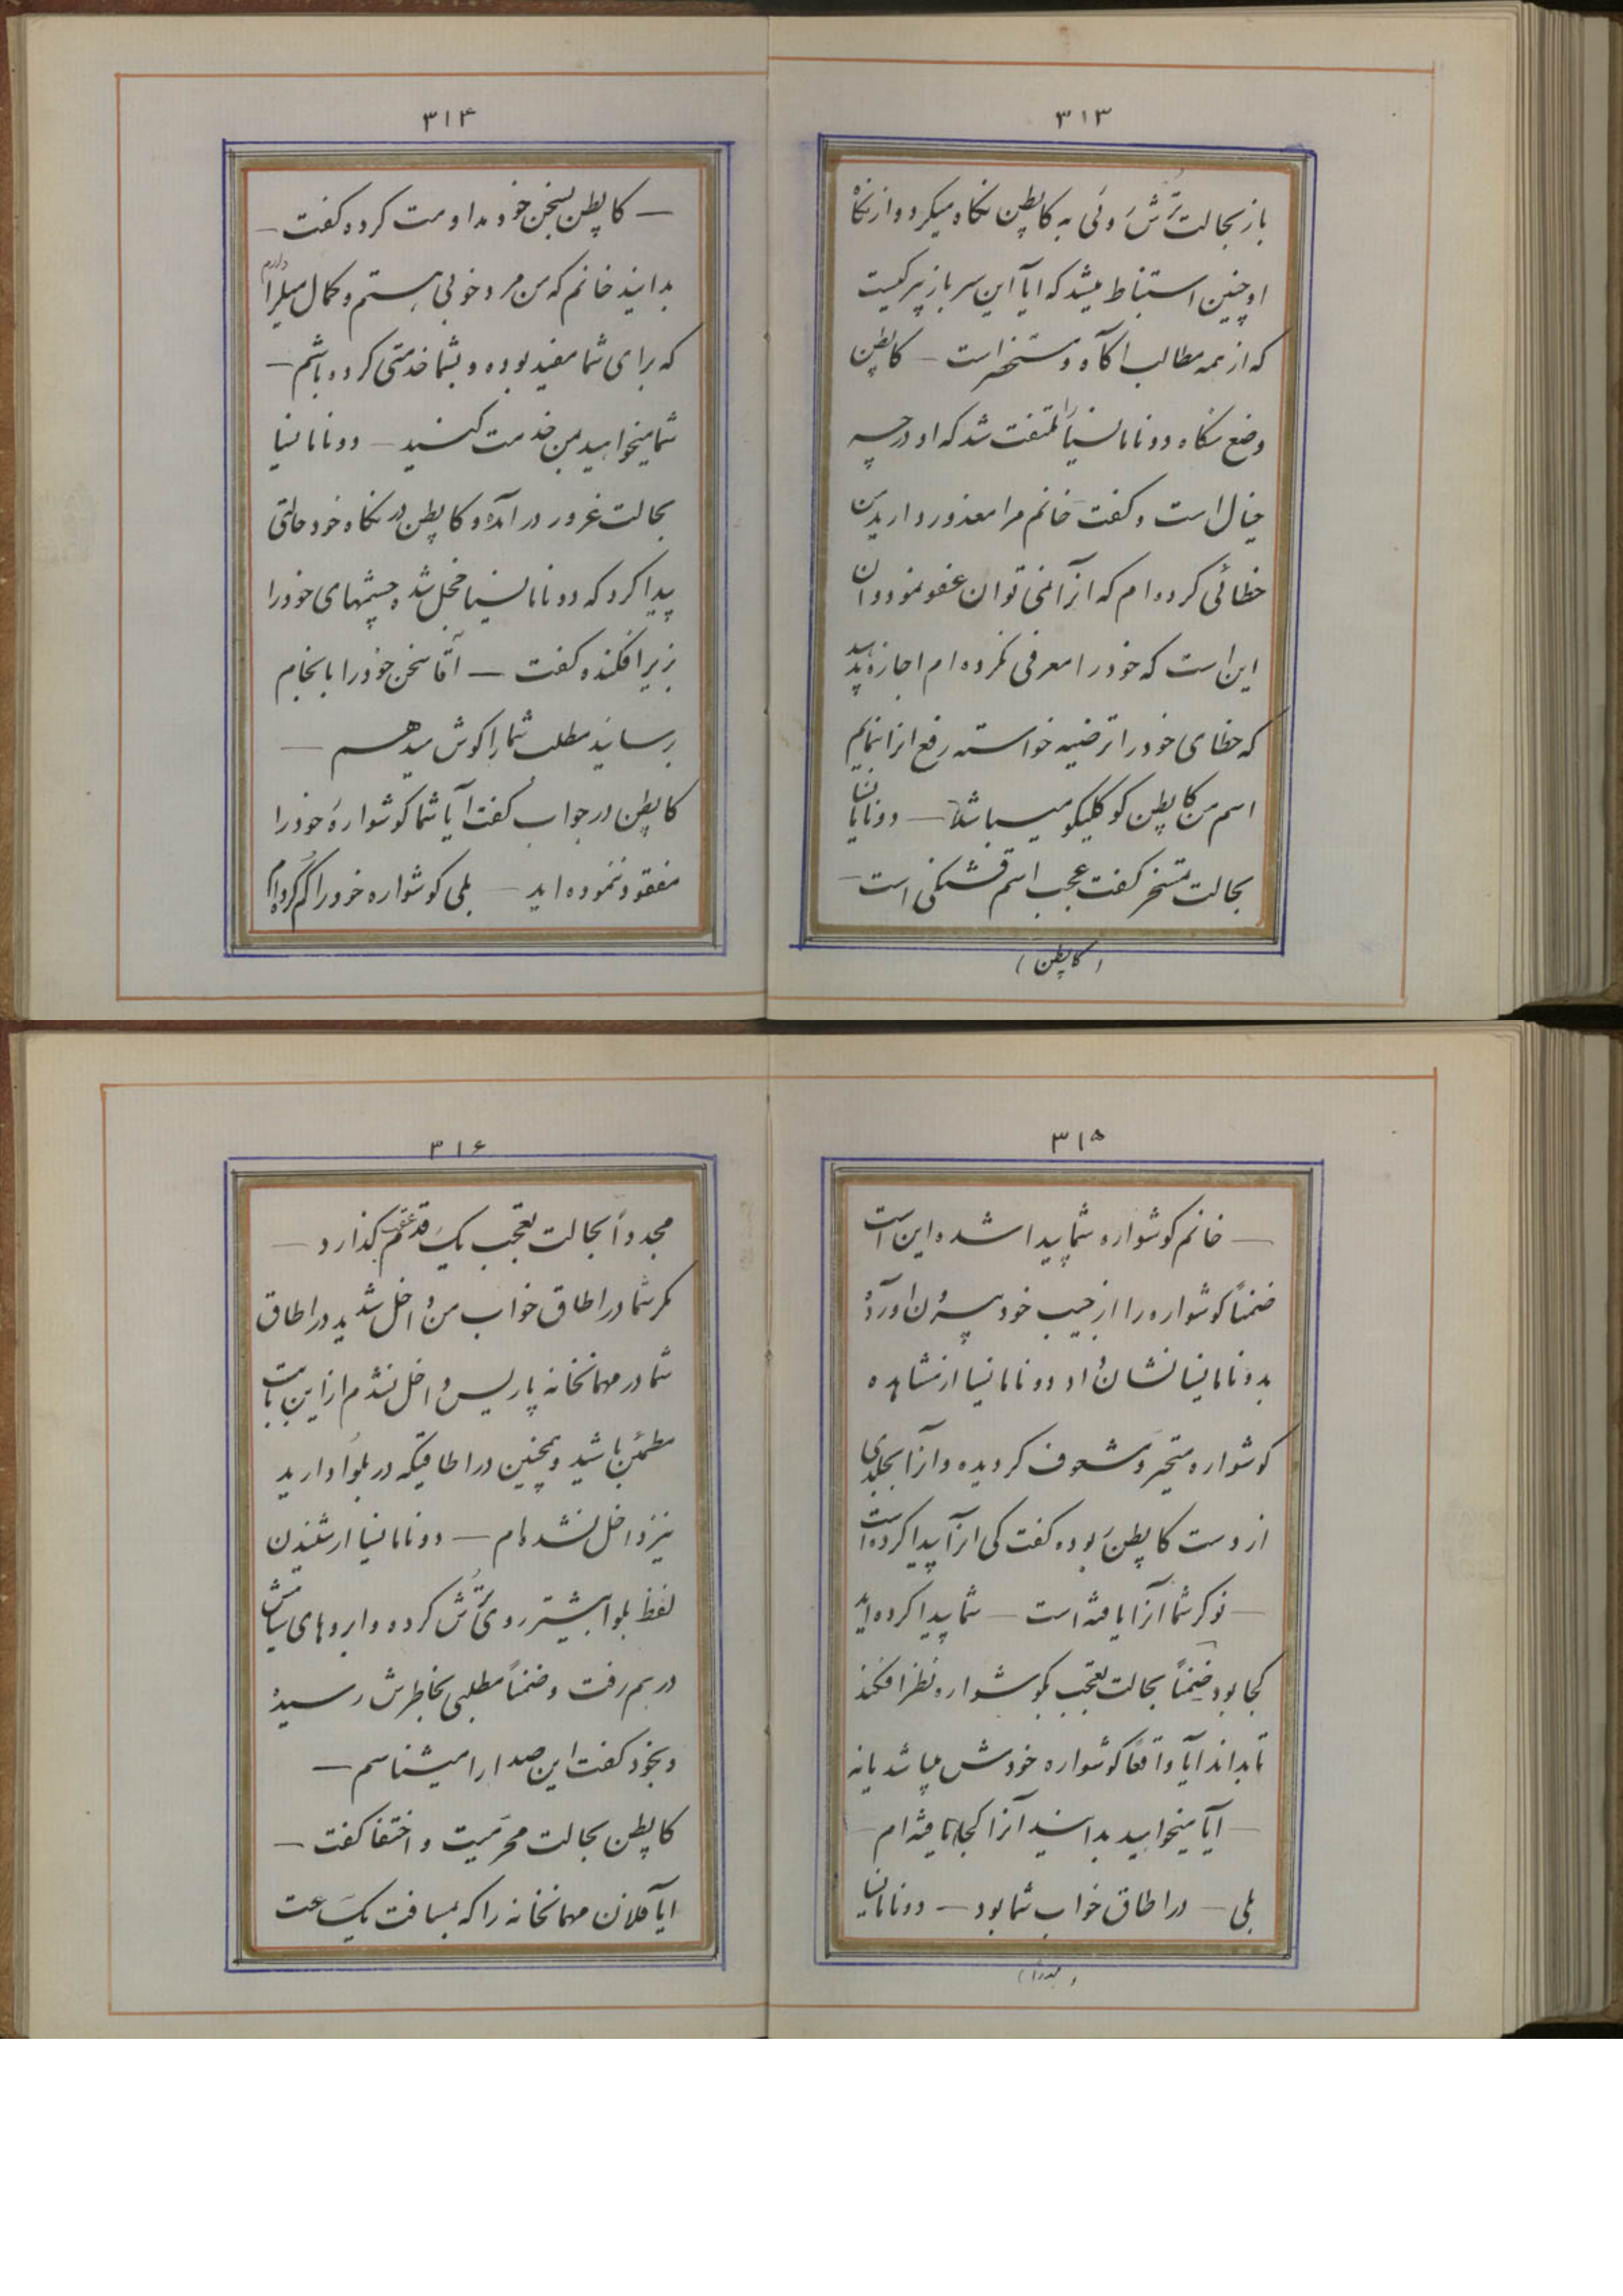 ۳۱۳
باز بحالت تُرش روئی به کاپطن نگاه میکرد و از نگاه
او چنین استنباط میشد که ایا این سرباز پیر کیست
که از همه مطالب اگاه و مستحضر است — کاپطن
وضع نگاه دونا مانسنیا را ملتفت شد که او در چه
خیال است و گفت خانم مرا معذور دارید من
خطائی کرده ام که انرا نمی توان عفو نمود و ان
این است که خود را معرفی نکرده ام اجازه بدهید
که خطای خود را ترضیه خواسته رفع انرا نمایم
اسم من کاپطن کوکلیکو میباشد — دونا مانسنیا
بحالت تمسخر گفت عجب اسم قشنگی است —
(کاپطن)
۳۱۴
— کاپطن بسخن خود مداومت کرده گفت —
بدانید خانم که من مرد خوبی هستم و کمال میل را دارم
که برای شما مفید بوده و بشما خدمتی کرده باشم —
شما میخواهید بمن خدمت کنید — دونا مانسنیا
بحالت غرور در آمده و کاپطن در نگاه خود حالتی
پیدا کرد که دونا مانسنیا خجل شد و چشمهای خود را
بزیر افکنده گفت — آقا سخن خود را بانجام
رسانید مطلب شما را گوش میدهم —
کاپطن در جواب گفت آیا شما گوشوارهٔ خود را
مفقود ننموده اید — بلی گوشواره خود را گم کرده ام
۳۱۵
— خانم گوشواره شما پیدا شده این است
ضمناً گوشواره را از جیب خود بیرون اورده
بدونا مانسنیا نشان داد دونا مانسنیا از مشاهده
گوشواره متحیر و مشعوف گردیده و انرا بجلدی
از دست کاپطن ربوده گفت کی انرا پیدا کرده است
— نوکر شما آنرا یافته است — شما پیدا کرده اید
کجا بود ضمناً بحالت تعجب بگوشواره نظر افکند
تا بداند ایا واقعاً گوشواره خودش میباشد یا نه
— آیا میخواهید بدانید آنرا کجا یافته ام —
بلی — در اطاق خواب شما بود — دونا مانسنیا
(مجدداً)
۳۱۶
مجدداً بحالت تعجب یک قدم عقب گذارد —
مگر شما در اطاق خواب من داخل شدید در اطاق
شما در مهمانخانه پاریس داخل نشدم از این بابت
مطمئن باشید و همچنین در اطاقیکه در بلوا دارید
نیز داخل نشده ام — دونا مانسنیا از شنیدن
لفظ بلوا بیشتر روی تُرش کرده و ابروهای سیاهش
در هم رفت و ضمناً مطلبی بخاطرش رسیده
و بخود گفت این صدا را میشناسم —
کاپطن بحالت محرمیت و اختفا گفت —
ایا فلان مهمانخانه را که بمسافت یک ساعت